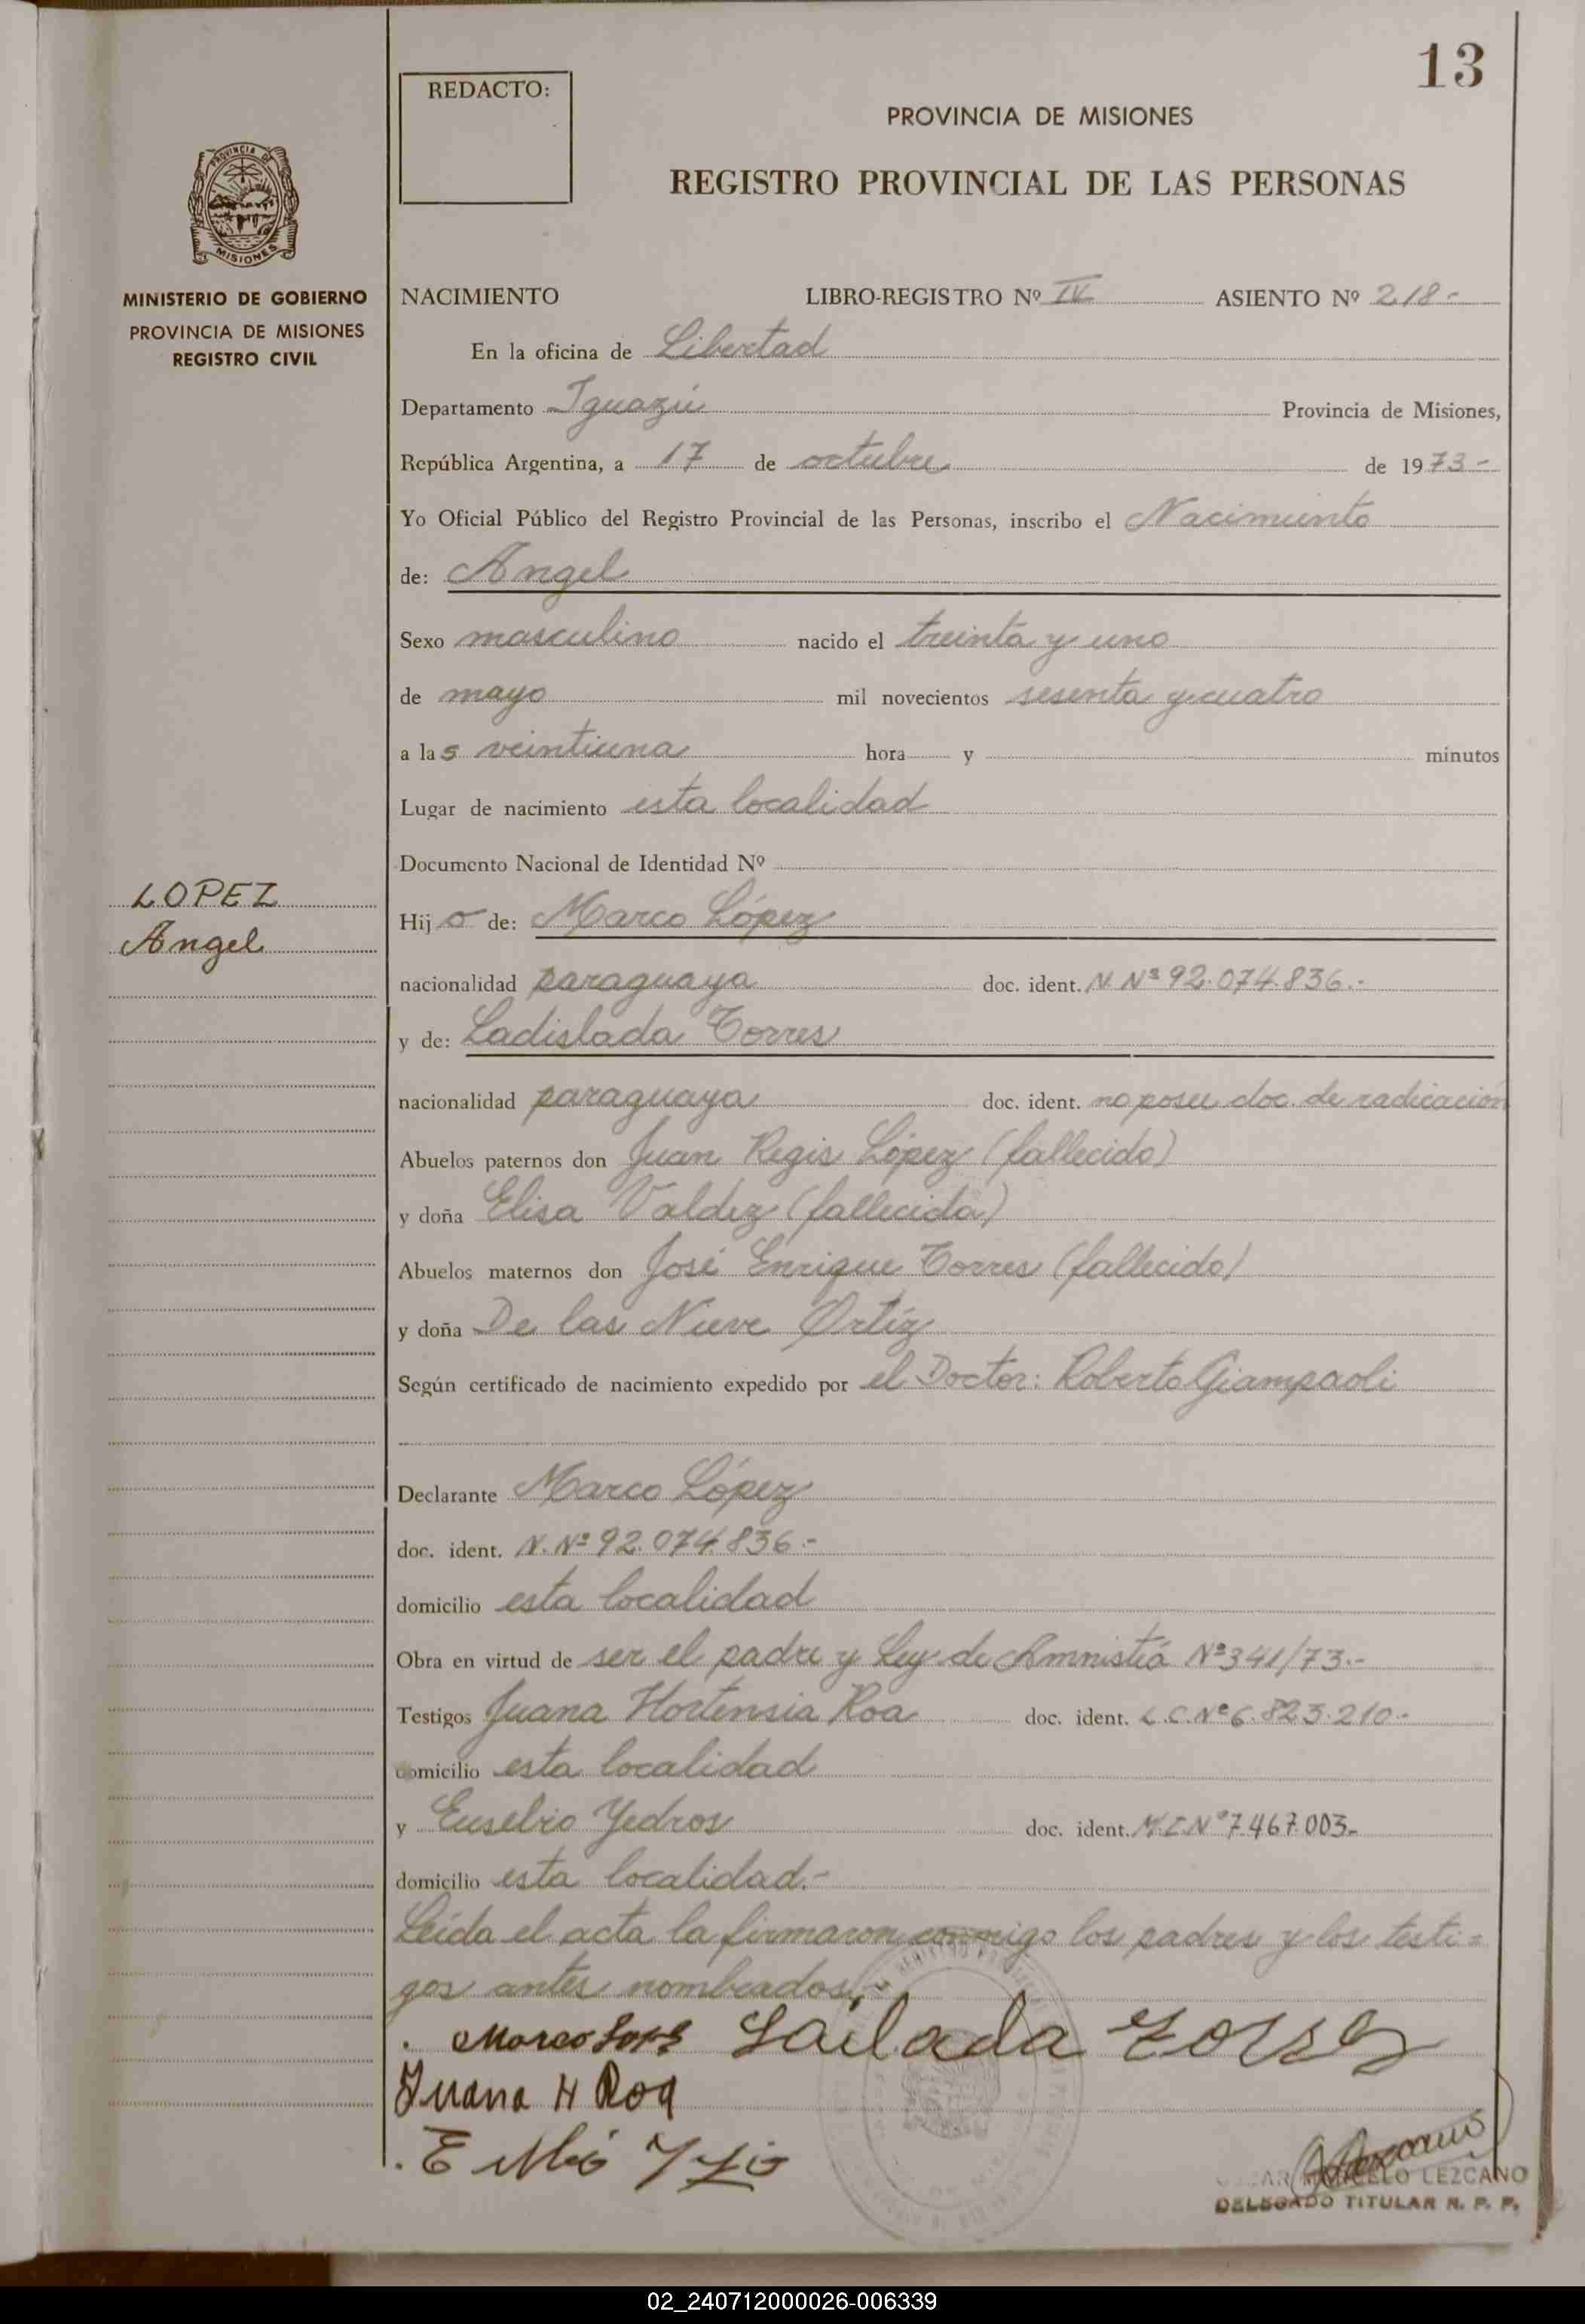 13
REDACTO:
PROVINCIA DE MISIONES
REGISTRO PROVINCIAL DE LAS PERSONAS
PROVINCIA DE
MISIONES
MINISTERIO DE GOBIERNO
PROVINCIA DE MISIONES
REGISTRO CIVIL
NACIMIENTO LIBRO-REGISTRO Nº IV ASIENTO Nº 218-
En la oficina de Libertad
Departamento Iguazú Provincia de Misiones,
República Argentina, a 17 de octubre de 1973-
Yo Oficial Público del Registro Provincial de las Personas, inscribo el Nacimiento
de: Angel
Sexo masculino nacido el treinta y uno
de mayo mil novecientos sesenta y cuatro
a las veintiuna hora y minutos
Lugar de nacimiento esta localidad
Documento Nacional de Identidad Nº
LOPEZ
Angel
Hijo de: Marco López
nacionalidad paraguaya doc. ident. N. Nº 92.074.836.-
y de: Ladislada Torres
nacionalidad paraguaya doc. ident. no posee doc. de radicación
Abuelos paternos don Juan Regis López (fallecido)
y doña Elisa Valdez (fallecida)
Abuelos maternos don José Enrique Torres (fallecido)
y doña De las Nieve Ortíz
Según certificado de nacimiento expedido por el Doctor: Roberto Giampaoli
Declarante Marco López
doc. ident. N. Nº 92.074.836.-
domicilio esta localidad
Obra en virtud de ser el padre y Ley de Amnistía Nº 341/73.-
Testigos Juana Hortensia Roa doc. ident. L.C. Nº 6.823.210.-
domicilio esta localidad
y Eusebio Yedros doc. ident. M.I. Nº 7.467.003-
domicilio esta localidad.-
Leída el acta la firmaron conmigo los padres y los testi=
gos antes nombrados.-
Marco Lopez Lailada Torres
Juana H Roa
MARCELO LEZCANO
DELEGADO TITULAR R. P. P.
02_240712000026-006339